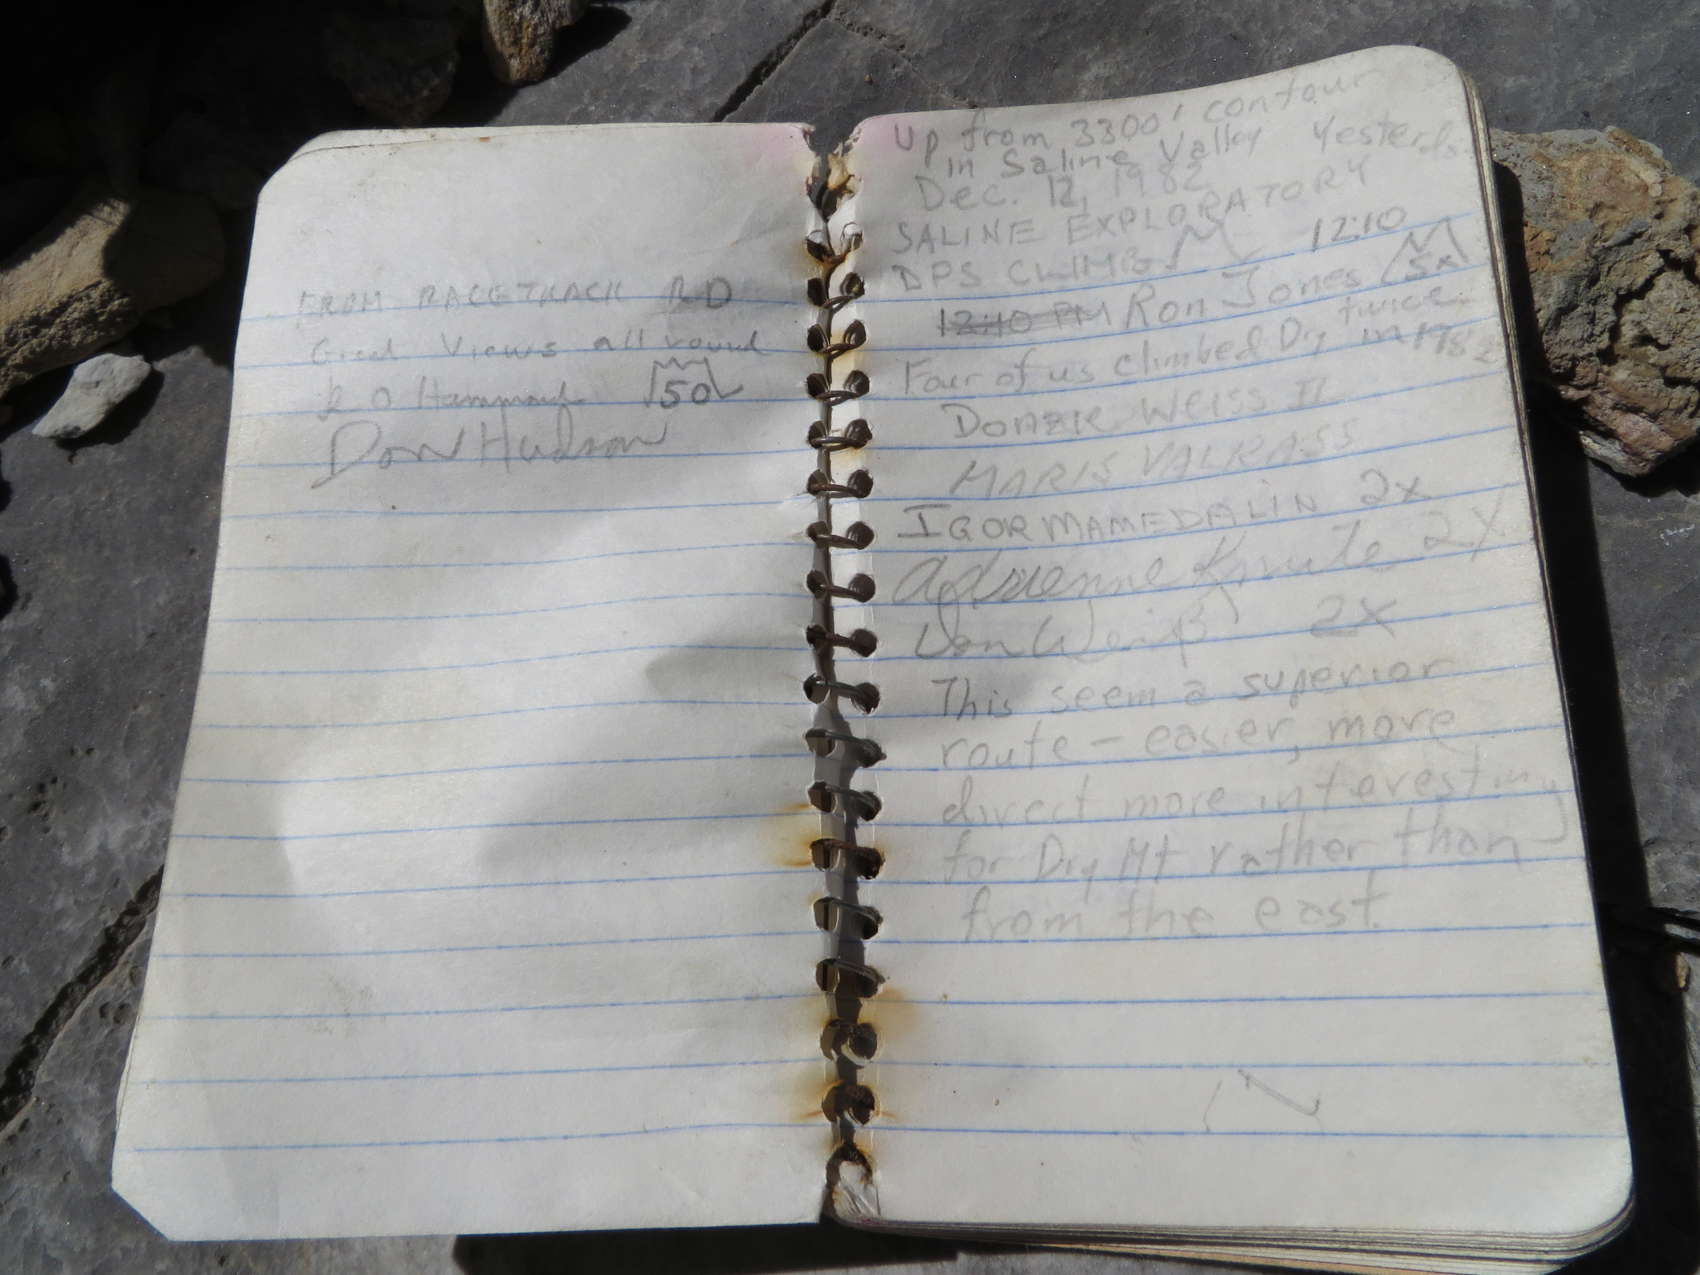 FROM RACETRACK RD
Great Views all round
R O Hammond 50
Don Hudson
Up from 3300' contour
in Saline Valley Yesterday
Dec. 12, 1982
SALINE EXPLORATORY
DPS CLIMB 12:10
12:10 PM Ron Jones 5x
twice
Four of us climbed Dry in 1982
Weiss II
MARIS VALKASS
IGOR MAMEDALIN 2x
Adrienne Knute 2X
Don Weiss 2X
This seem a superior
route - easier, more
direct more interesting
for Dry Mt rather than
from the east.